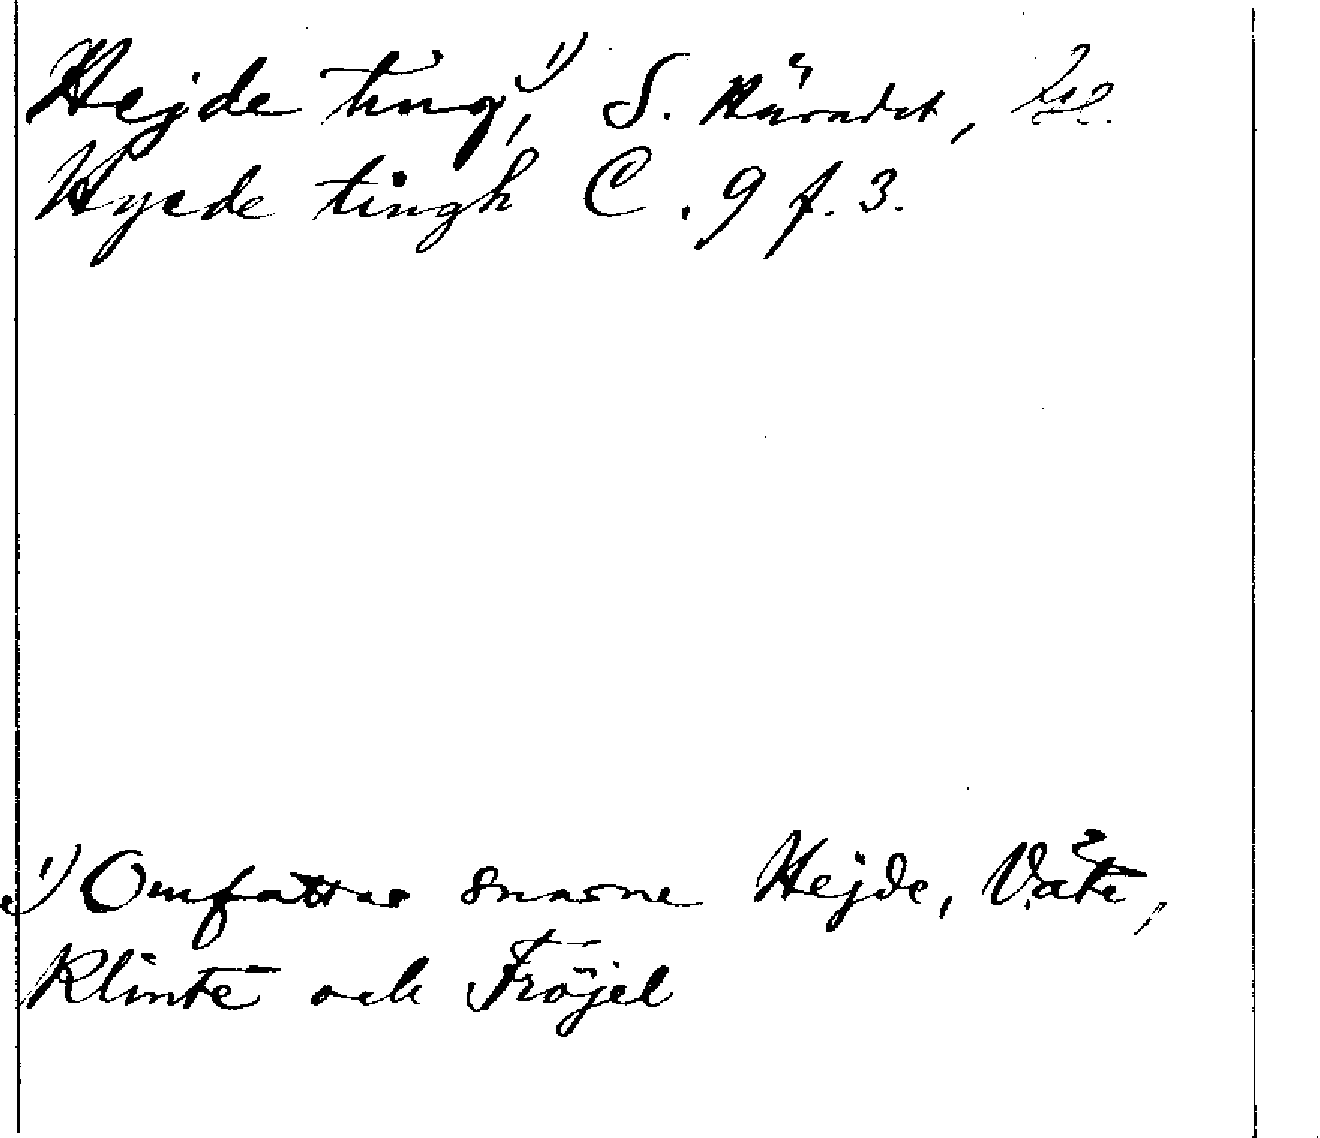 Hejde ting,¹⁾ S. Häradet,
Hyede tingh C. 9 f. 3.
¹⁾ Omfattar snarne Hejde, Väte,
Klinte och Fröjel